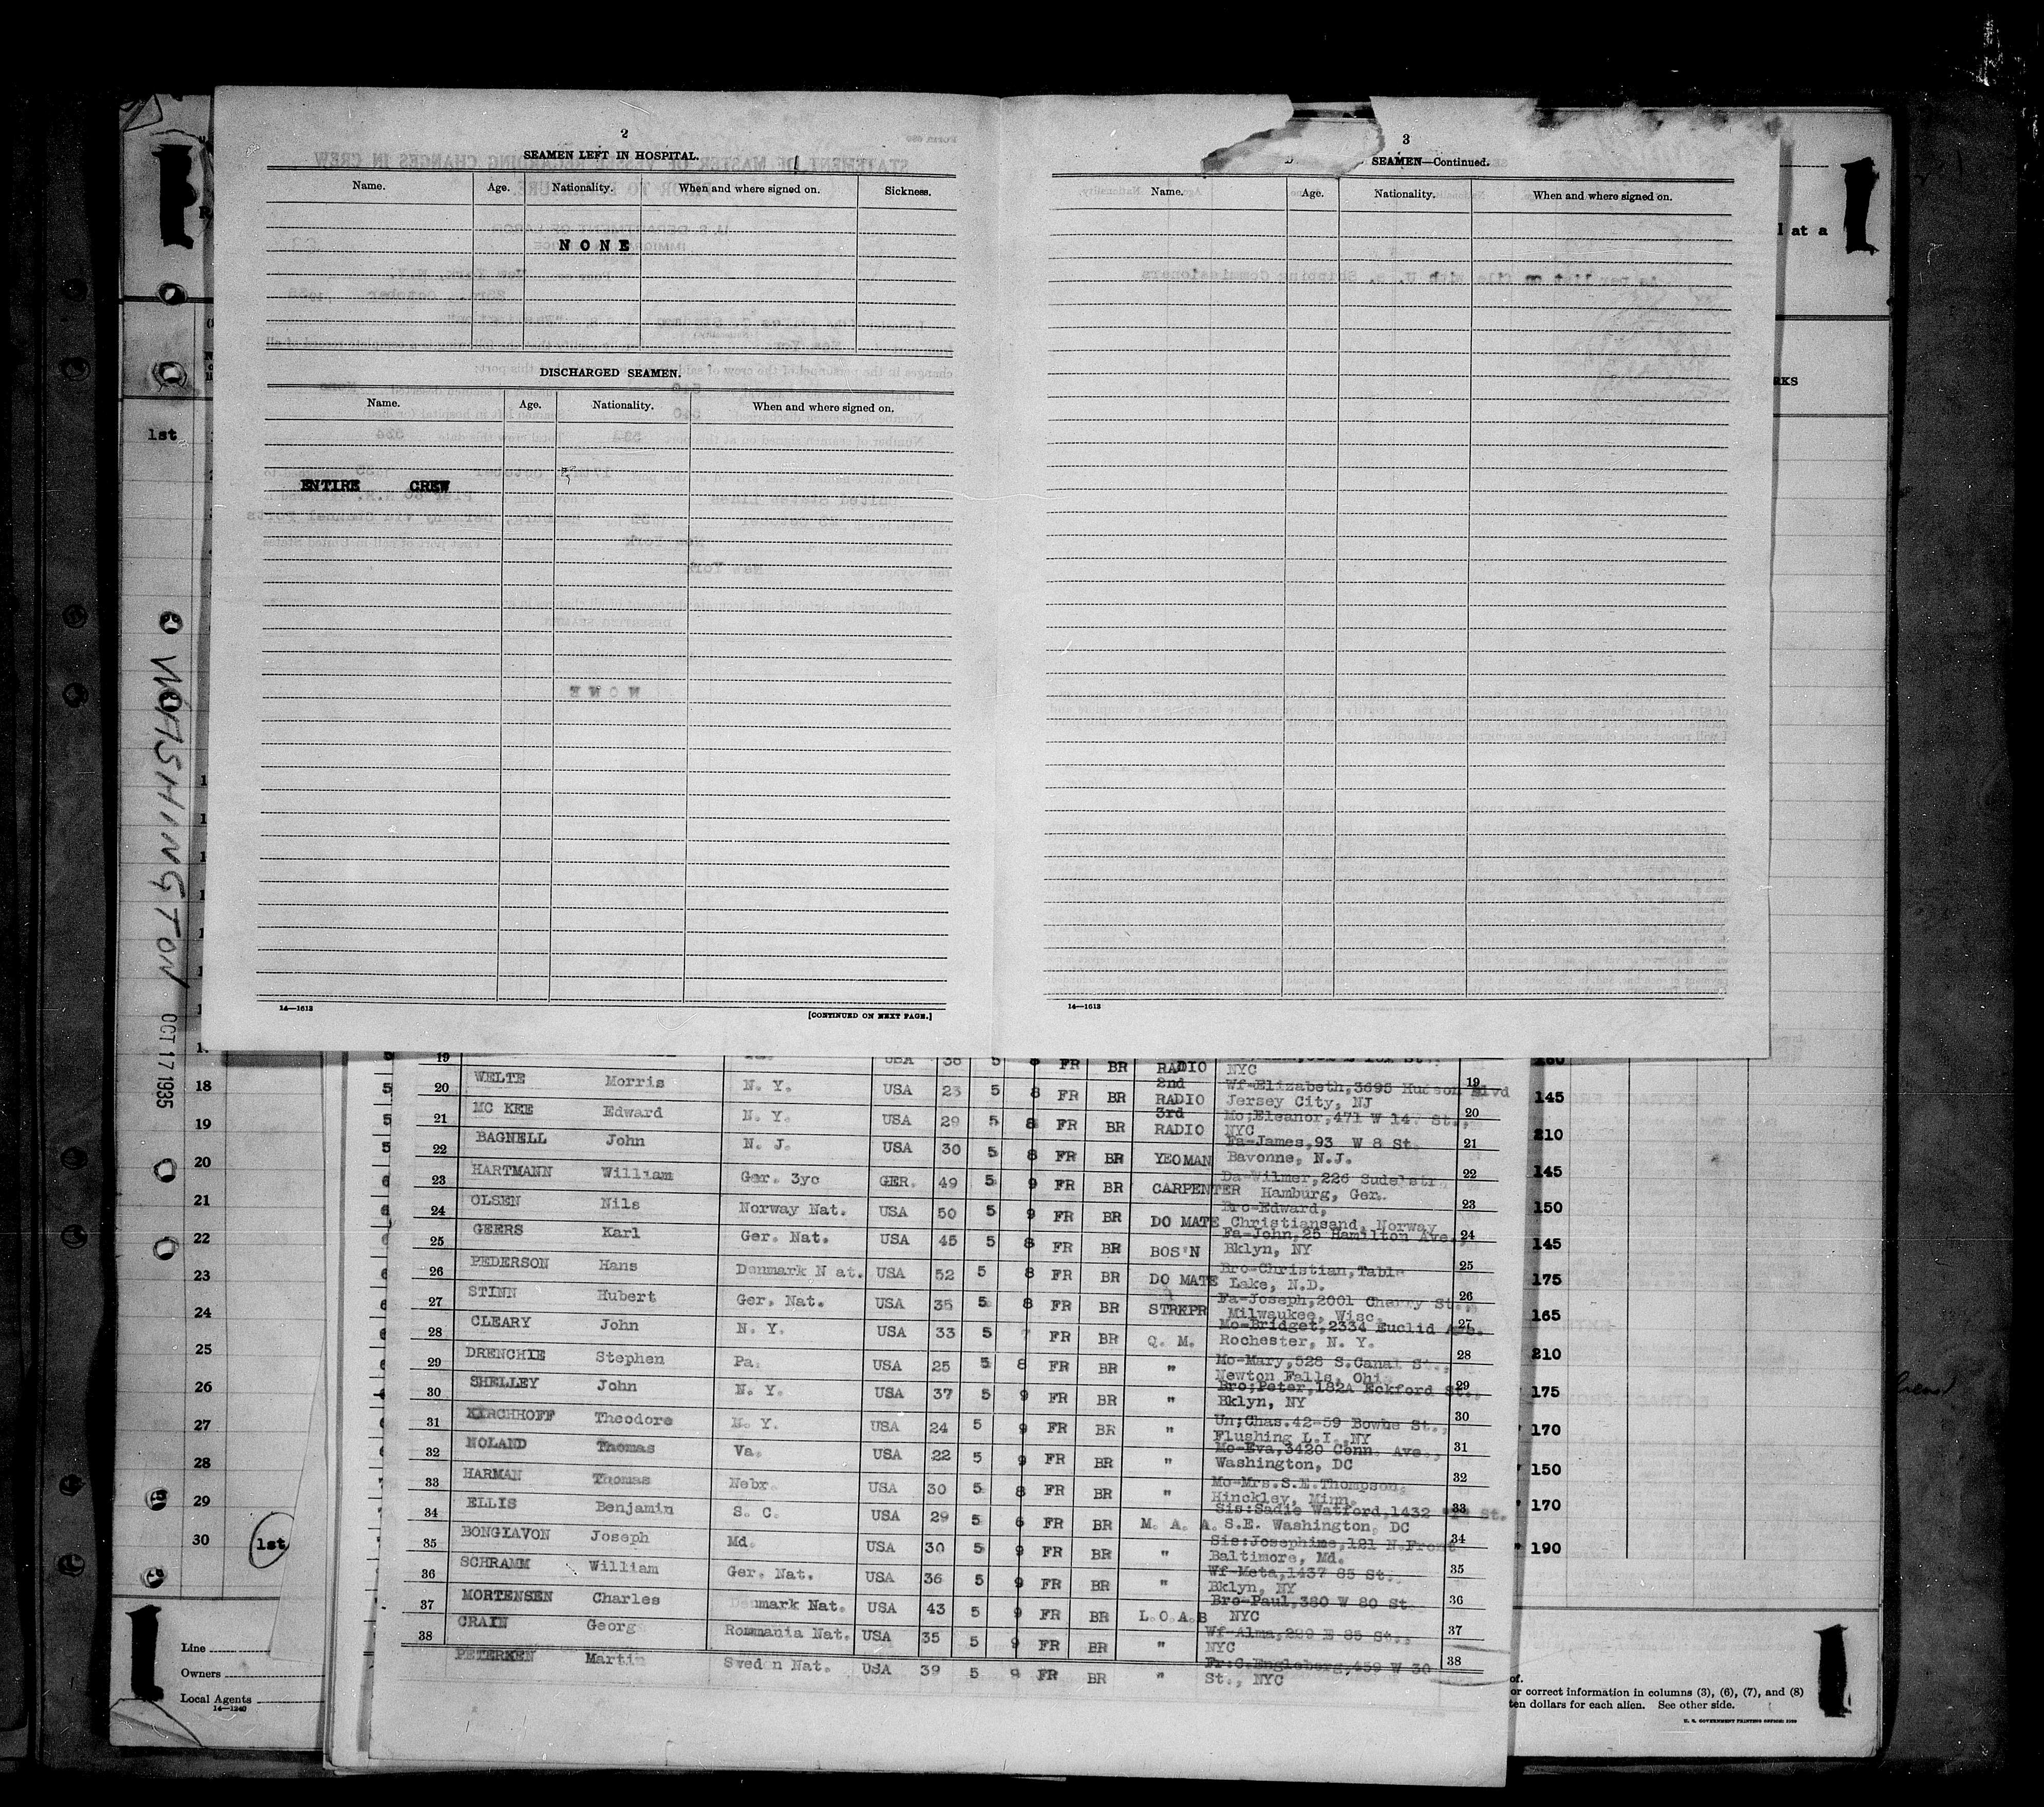 2
SEAMEN LEFT IN HOSPITAL.
Name. Age. Nationality. When and where signed on. Sickness.
NONE
DISCHARGED SEAMEN.
Name. Age. Nationality. When and where signed on.
ENTIRE CREW
14—1613
[CONTINUED ON NEXT PAGE.]
3
SEAMEN—Continued.
Name. Age. Nationality. When and where signed on.
14—1613
l at a
RKS
1st
WASHINGTON
OCT 17 1935
18
19
20
21
22
23
24
25
26
27
28
29
30 1st
Line
Owners
Local Agents
14—1240
19 USA 38 5 8 FR BR RADIO NYC
20 WELTE Morris N. Y. USA 23 5 8 FR BR 2nd RADIO Wf-Elizabeth,3695 Hudson Blvd 19
Jersey City, NJ
21 MC KEE Edward N. Y. USA 29 5 8 FR BR 3rd RADIO Mo;Eleanor,471 W 147 St., 20
NYC
22 BAGNELL John N. J. USA 30 5 8 FR BR YEOMAN Fa-James,93 W 8 St. 21
Bavonne, N.J.
23 HARTMANN William Ger. 3yc GER. 49 5 9 FR BR CARPENTER Da-Wilmer,226 Sudelstr. 22
Hamburg, Ger.
24 OLSEN Nils Norway Nat. USA 50 5 9 FR BR DO MATE Bro-Edward, 23
Christiansand, Norway
25 GEERS Karl Ger. Nat. USA 45 5 8 FR BR BOS'N Fa-John,25 Hamilton Ave., 24
Bklyn, NY
26 PEDERSON Hans Denmark Nat. USA 52 5 8 FR BR DO MATE Bro-Christian,Table 25
Lake, N.D.
27 STINN Hubert Ger. Nat. USA 35 5 8 FR BR STRKPR Fa-Joseph,2001 Cherry St., 26
Milwaukee, Wisc.
28 CLEARY John N. Y. USA 33 5 7 FR BR Q. M. Mo-Bridget,2334 Euclid Ave. 27
Rochester, N. Y.
29 DRENCHIE Stephen Pa. USA 25 5 8 FR BR " Mo-Mary,528 S.Canal St., 28
Newton Falls, Ohio
30 SHELLEY John N. Y. USA 37 5 9 FR BR " Bro;Peter,182A Eckford St., 29
Bklyn, NY
31 KIRCHHOFF Theodore N. Y. USA 24 5 9 FR BR " Un;Chas.42-59 Bowne St., 30
Flushing L.I.,NY
32 NOLAND Thomas Va. USA 22 5 9 FR BR " Mo-Eva,3420 Conn. Ave., 31
Washington, DC
33 HARMAN Thomas Nebr. USA 30 5 8 FR BR " Mo-Mrs.S.E.Thompson, 32
Hinckley, Minn.
34 ELLIS Benjamin S. C. USA 29 5 6 FR BR M. A. A. Sis:Sadie Watford,1432 St. 33
S.E. Washington, DC
35 BONGIAVON Joseph Md. USA 30 5 9 FR BR " Sis:Josephine,121 N.Front 34
Baltimore, Md.
36 SCHRAMM William Ger. Nat. USA 36 5 9 FR BR " Wf-Meta,1437 85 St. 35
Bklyn, NY
37 MORTENSEN Charles Denmark Nat. USA 43 5 9 FR BR L.O.A.B Bro-Paul,380 W 80 St. 36
NYC
38 CRAIN Georg Rommania Nat. USA 35 5 9 FR BR " Wf-Alma,299 E 85 St., 37
NYC
PETERKEN Martin Sweden Nat. USA 39 5 9 FR BR " Fr:C.Engleberg,459 W 30 38
St., NYC
160
145
210
145
150
145
175
165
210
175
170
150
170
190
of.
or correct information in columns (3), (6), (7), and (8)
ten dollars for each alien. See other side.
U. S. GOVERNMENT PRINTING OFFICE: